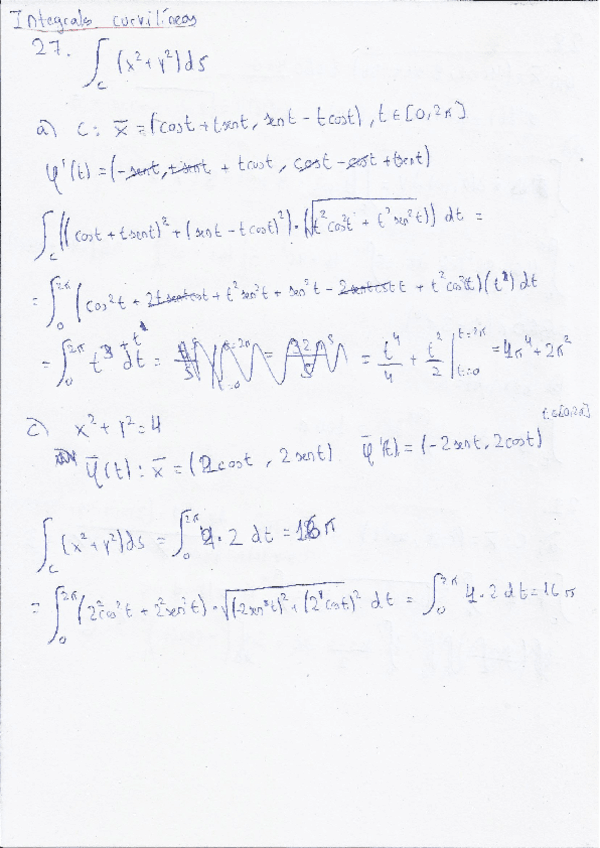 Integrales curvilíneas
27. ∫_C (x² + y²) ds
a) C: x̄ = (cost + t sent, sent - t cost), t ∈ [0, 2π]
φ'(t) = (-sent + sent + t cost, cost - cost + t sent)
∫_C ((cost + t sent)² + (sent - t cost)²) · (√(t² cos²t + t² sen²t)) dt =
= ∫₀^2π (cos²t + 2t sent cost + t² sen²t + sen²t - 2 sent cost t + t² cos²t) (t) dt
= ∫₀^2π t³ + t dt = = t⁴/4 + t²/2 |_{t=0}^{t=2π} = 4π⁴ + 2π²
c) x² + y² = 4
φ̄(t): x̄ = (2cost, 2sent) φ̄'(t) = (-2sent, 2cost) t ∈ [0, 2π]
∫_C (x² + y²) ds = ∫₀^2π 4 · 2 dt = 16π
= ∫₀^2π (2² cos²t + 2² sen²t) · √((-2sent)² + (2cost)²) dt = ∫₀^2π 4 · 2 dt = 16π